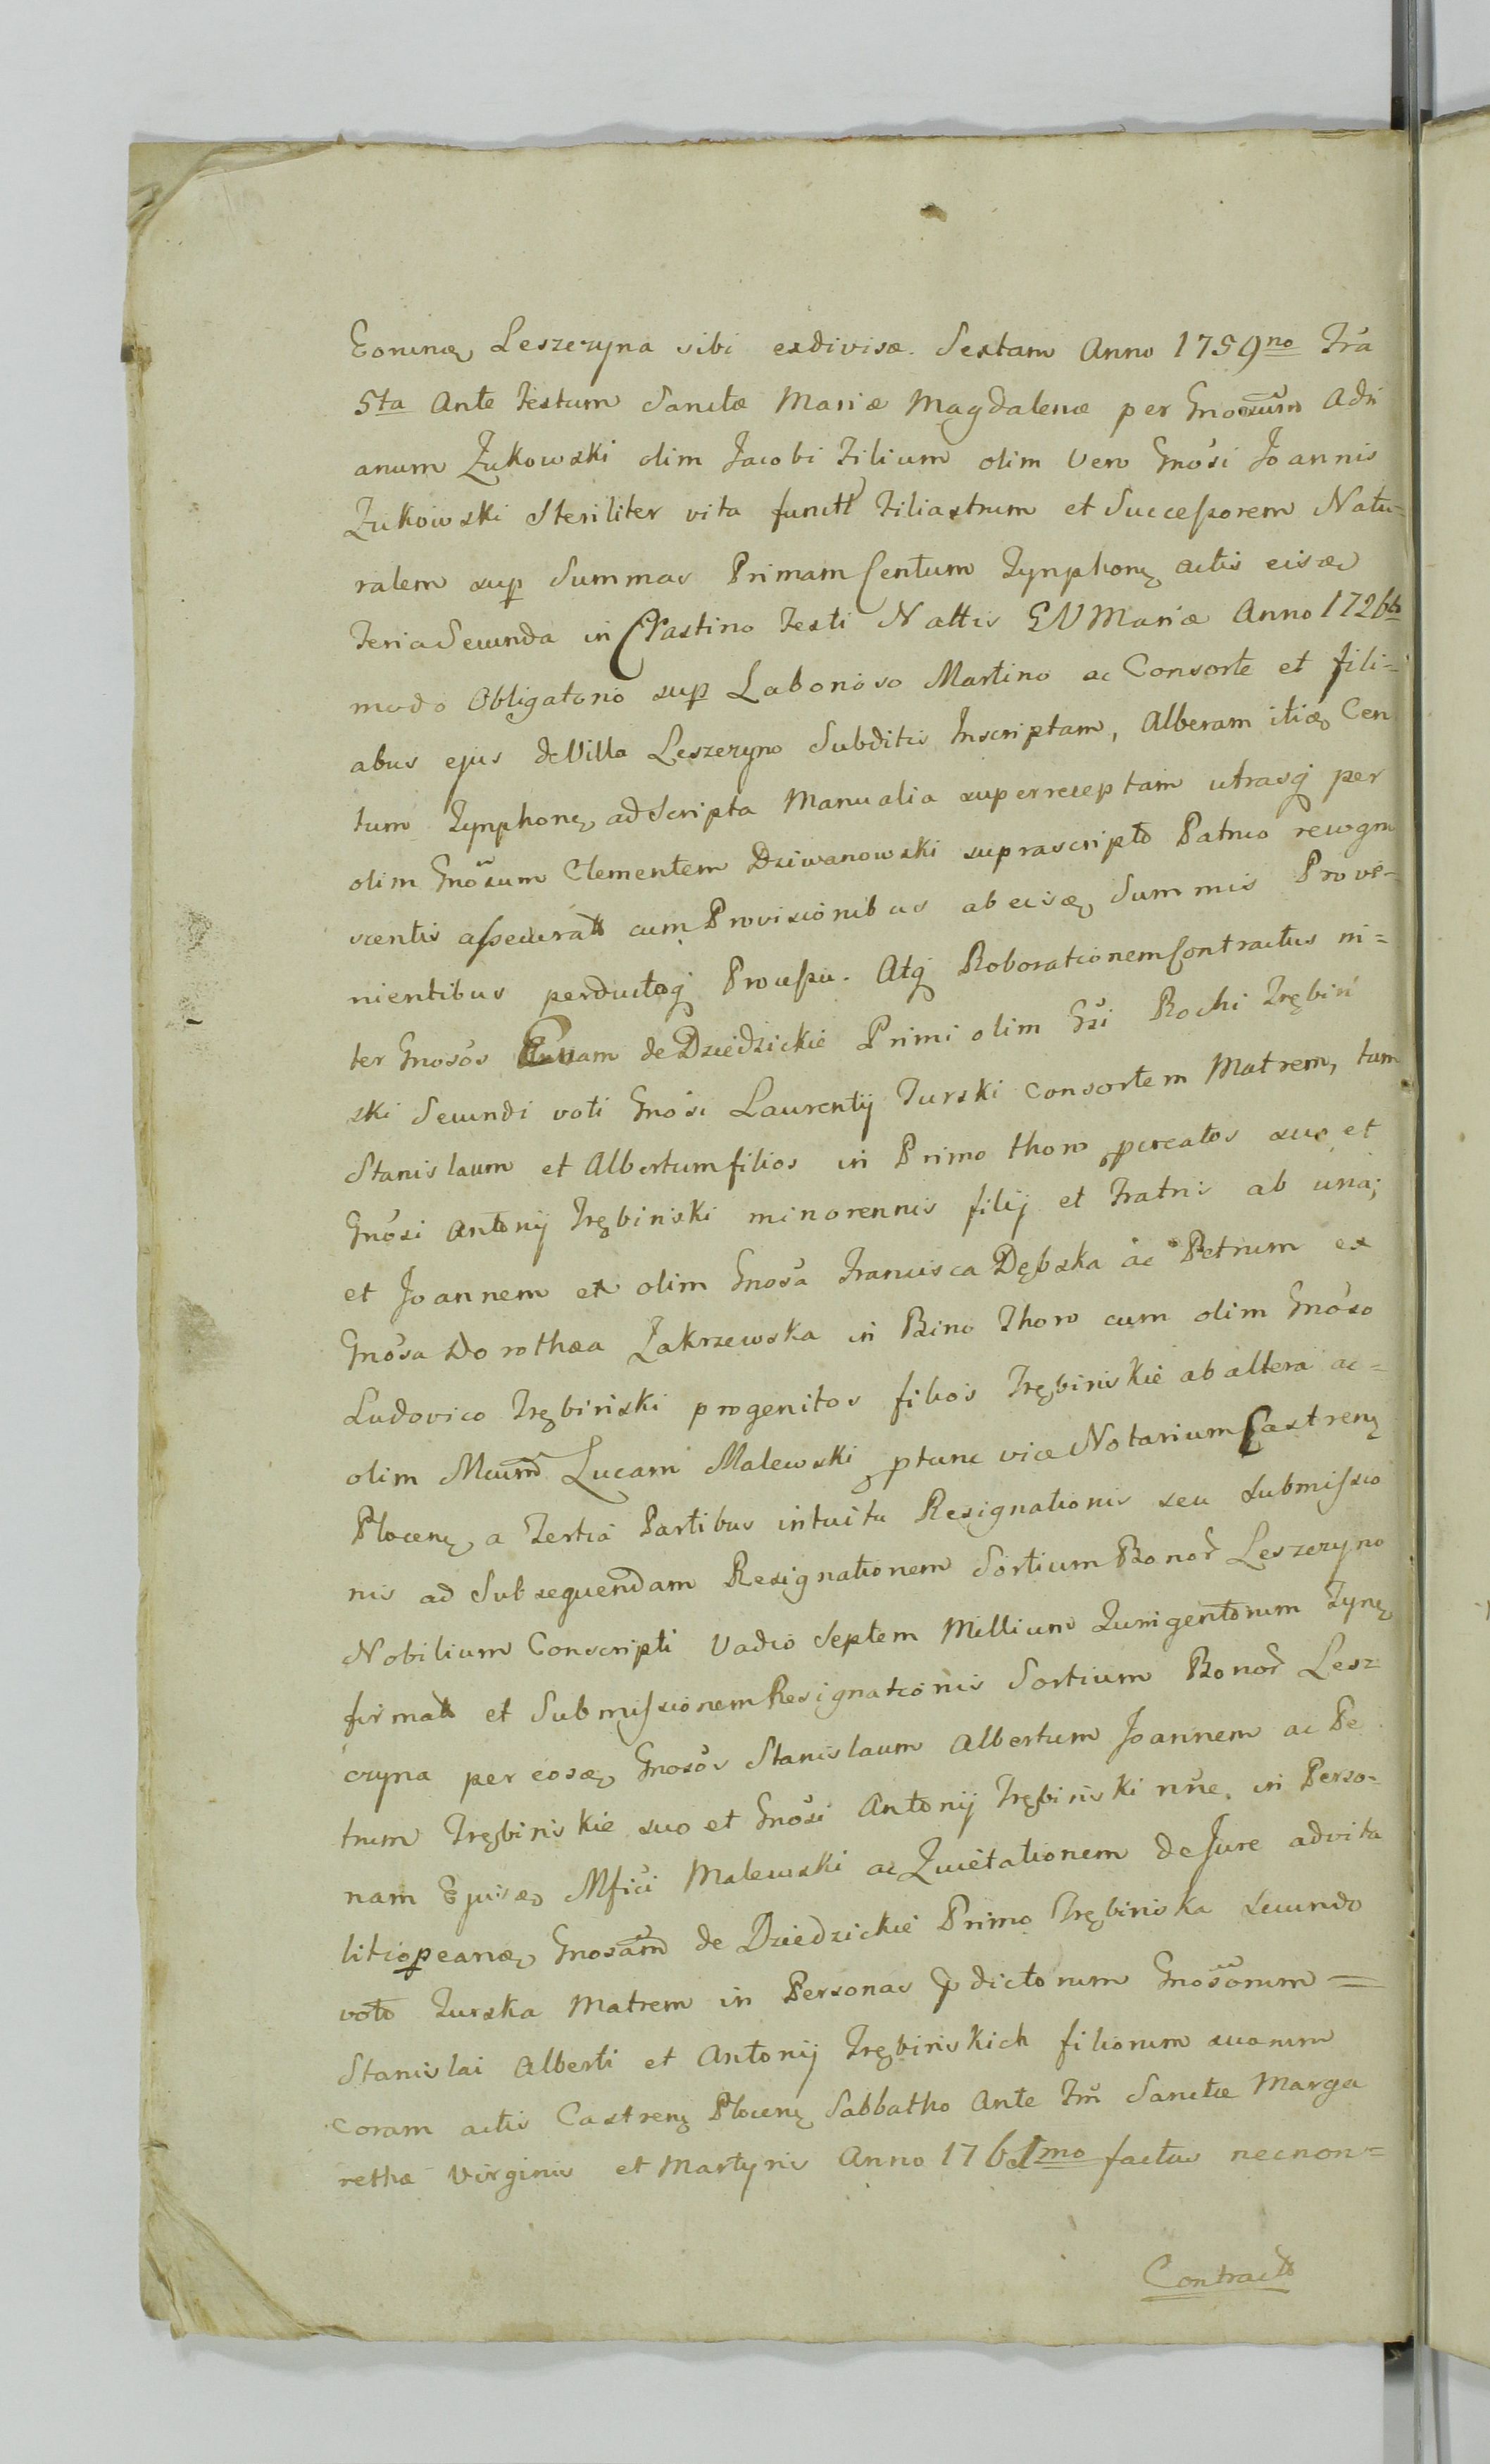 Eorundę Leszczyna sibi exdivisæ. Sextam Anno 1759no Fra
5ta Ante Festum Sanctæ Mariæ Magdalenæ per Gnosum Adri
anum Żukowski olim Jacobi Filium olim Vero Gnosi Joannis
Żukowski Steriliter vita functi Filiastrum et Successorem Natu-
ralem sup Summas Primam Centum Tynphonę actis eisdę
Feria Secunda in Crastino Festi Nattis BVMariæ Anno 1726to
modo Obligatorio sup Laborioso Martino ac Consorte et fili-
abus ejus de Villa Leszczyno Subditis Inscriptam, Alteram itidę Cen
tum Tynphonę ad Scripta Manualia superreceptam utrasq per
olim Gnosum Clementem Dziwanowski suprascripto Patruo recogno
scentis assecurat cum Provisionibus ab eisdę Summis Prove-
nientibus perductaq Processu. Atq Roborationem Contractus in=
ter Gnosos Evam de Dziedzickie Primi olim Gsi Rochi Trębiń
ski Secundi voti Gnosi Laurentij Turski Consortem Matrem, tum
Stanislaum et Albertum filios in Primo thoro pcreatos suo et
Gnosi Antonij Trębiński minorennis filij et Fratris ab una;
et Joannem ex olim Gnosa Francisca Dębska ac Petrum ex
Gnosa Dorothæa Zakrzewska in Bino Thoro cum olim Gnoso
Ludovico Trębiński progenitos filios Trębińskie ab altera ac=
olim Mcum Lucam Malewski ptunc vice Notarium Castrenę
Plocenę a Tertia Partibus intuitu Resignationis seu submissio
nis ad Subsequendam Resignationem Sortium Bonor Leszczyno
Nobilium Conscripti Vadio Septem Millium Quingentorum Tynę
firmat et Submissionem Resignationis Sortium Bonor Lesz
czyna per eosdę Gnosos Stanislaum Albertum Joannem ac Pe
trum Trębińskie suo et Gnosi Antonij Trębiński nne. in Perso-
nam Ejusdę Mfici Malewski ac Quietationem de Jure advita
litio per eandę Gnosam de Dziedzickie Primo Trębińska Secundo
voto Turska Matrem in Personas pdictorum Gnosorum =
Stanislai Alberti et Antonij Trębińskich filiorum suorum
coram actis Castrenę Plocenę Sabbatho Ante Fm Sanctæ Marga
rethæ Virginis et Martyris Anno 1761mo factas necnon=
Contract